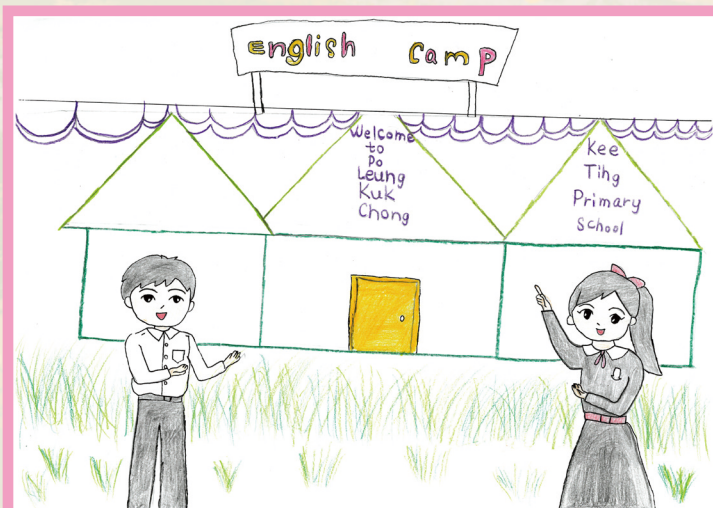 English Camp
Welcome
to
Po
Leung
Kuk
Chong
Kee
Tihg
Primary
School